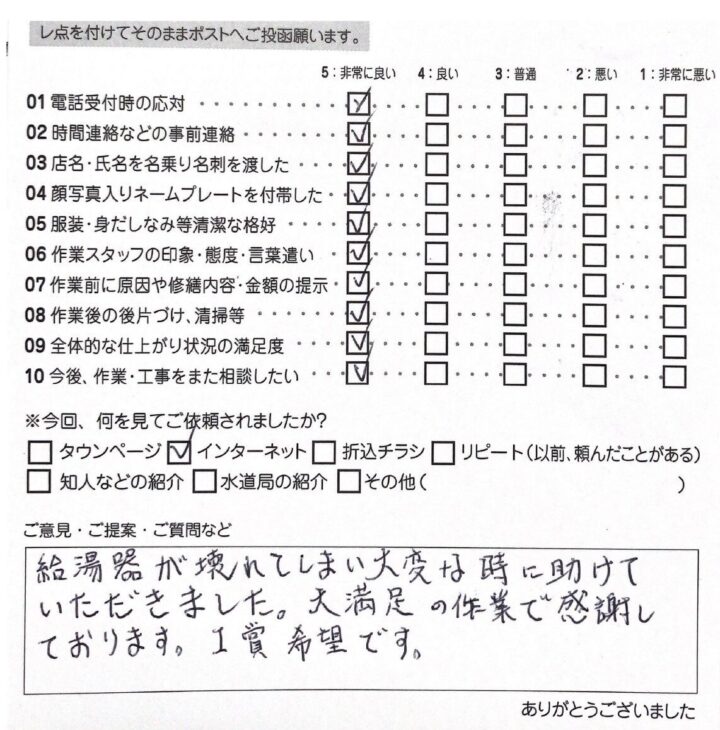 レ点を付けてそのままポストへご投函願います。
5：非常に良い 4：良い 3：普通 2：悪い 1：非常に悪い
01 電話受付時の応対
02 時間連絡などの事前連絡
03 店名・氏名を名乗り名刺を渡した
04 顔写真入りネームプレートを付帯した
05 服装・身だしなみ等清潔な格好
06 作業スタッフの印象・態度・言葉遣い
07 作業前に原因や修繕内容・金額の提示
08 作業後の後片づけ、清掃等
09 全体的な仕上がり状況の満足度
10 今後、作業・工事をまた相談したい
※今回、何を見てご依頼されましたか?
タウンページ インターネット 折込チラシ リピート(以前、頼んだことがある)
知人などの紹介 水道局の紹介 その他( )
ご意見・ご提案・ご質問など
給湯器が壊れてしまい大変な時に助けて
いただきました。大満足の作業で感謝し
ております。I賞希望です。
ありがとうございました